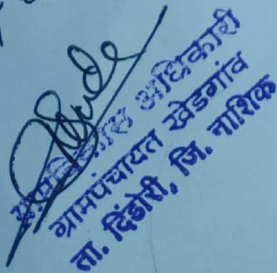 ग्रामविकास अधिकारी
ग्रामपंचायत खेडगांव
ता. दिंडोरी, जि. नाशिक